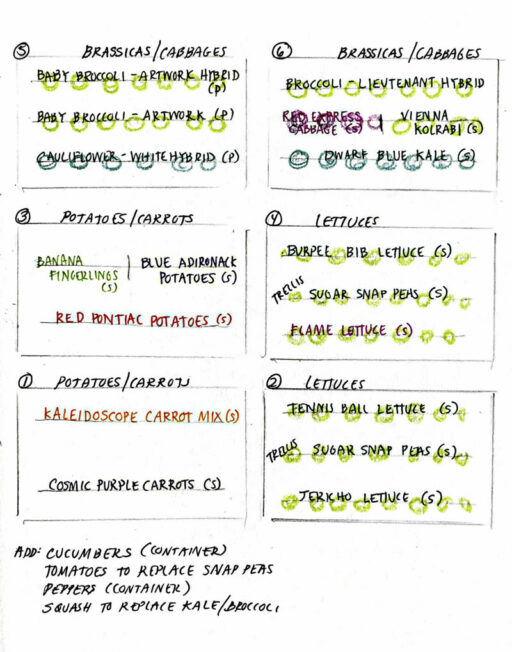 ⑤ BRASSICAS/CABBAGES
BABY BROCCOLI - ARTWORK HYBRID
(P)
BABY BROCCOLI - ARTWORK (P)
CAULIFLOWER - WHITE HYBRID (P)
⑥ BRASSICAS/CABBAGES
BROCCOLI - LIEUTENANT HYBRID
RED EXPRESS
CABBAGE (S)
VIENNA
KOLRABI (S)
DWARF BLUE KALE (S)
③ POTATOES/CARROTS
BANANA
FINGERLINGS
(S)
BLUE ADIRONACK
POTATOES (S)
RED PONTIAC POTATOES (S)
④ LETTUCES
BURPEE BIB LETTUCE (S)
TRELLIS
SUGAR SNAP PEAS (S)
FLAME LETTUCE (S)
① POTATOES/CARROTS
KALEIDOSCOPE CARROT MIX (S)
COSMIC PURPLE CARROTS (S)
② LETTUCES
TENNIS BALL LETTUCE (S)
TRELLIS
SUGAR SNAP PEAS (S)
JERICHO LETTUCE (S)
ADD: CUCUMBERS (CONTAINER)
TOMATOES TO REPLACE SNAP PEAS
PEPPERS (CONTAINER)
SQUASH TO REPLACE KALE/BROCCOLI